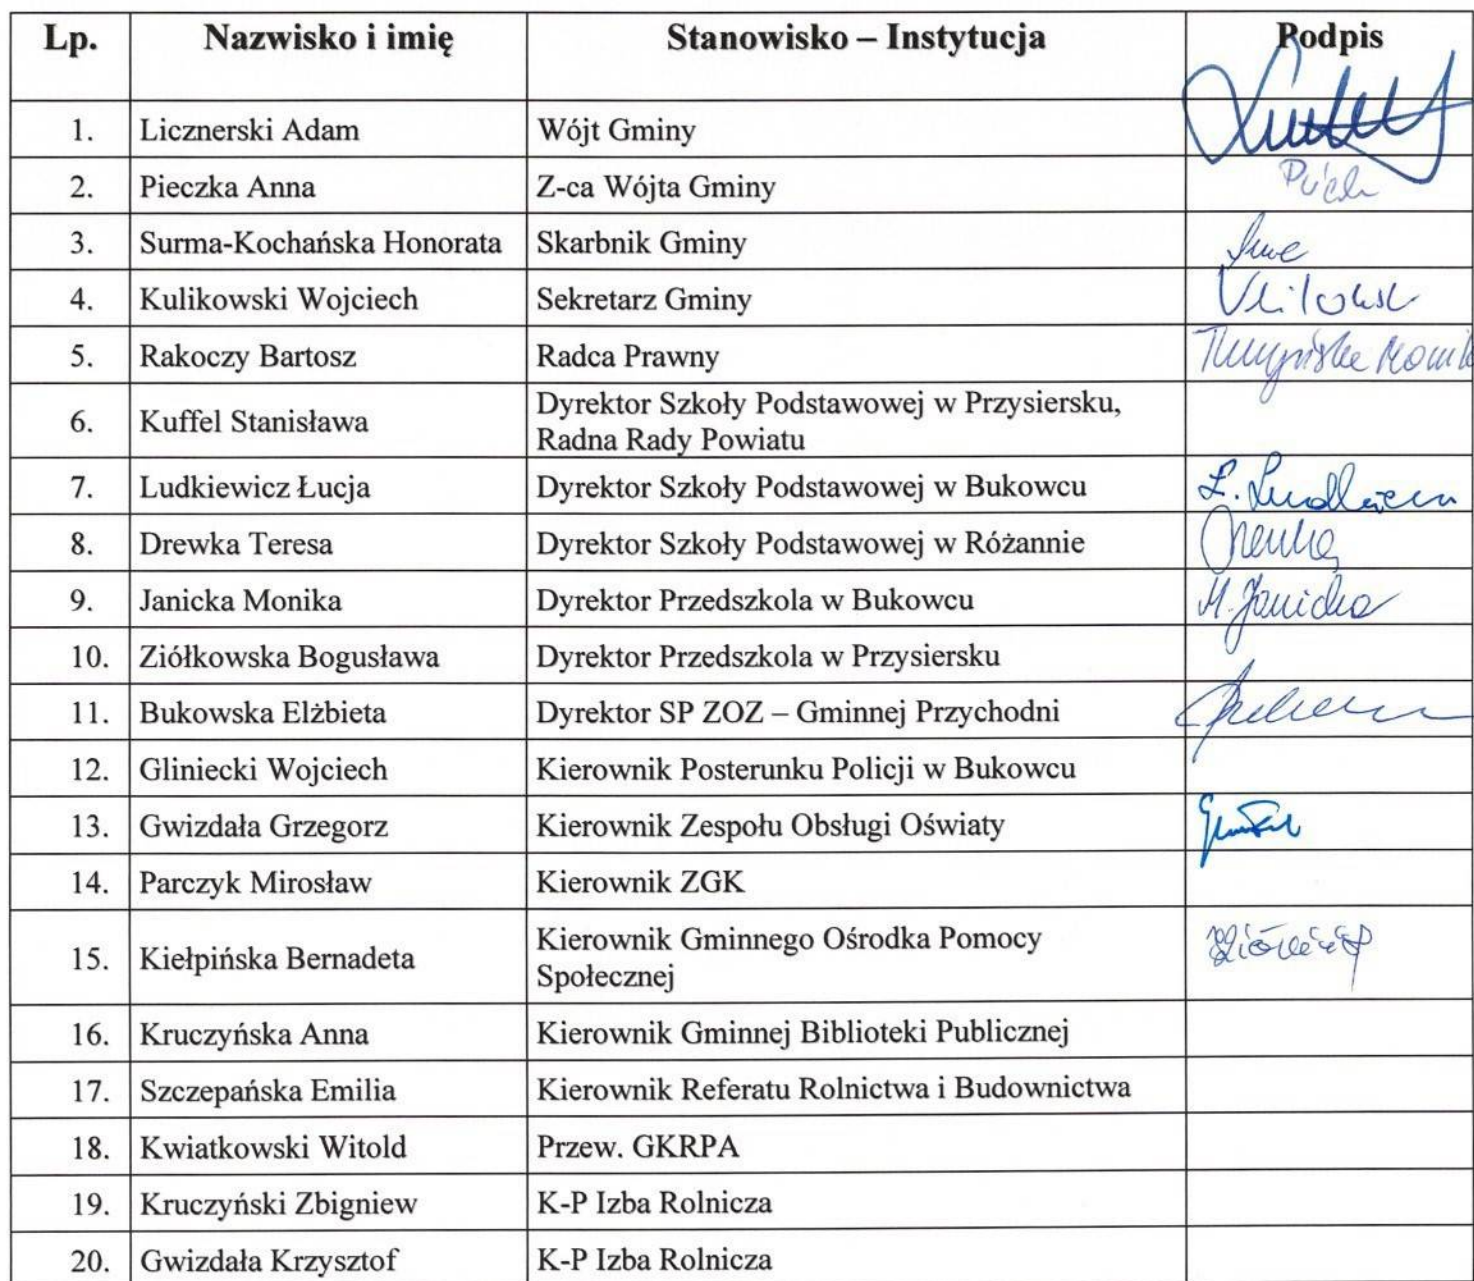 Lp. Nazwisko i imię Stanowisko – Instytucja Podpis
1. Licznerski Adam Wójt Gminy
2. Pieczka Anna Z-ca Wójta Gminy
3. Surma-Kochańska Honorata Skarbnik Gminy
4. Kulikowski Wojciech Sekretarz Gminy
5. Rakoczy Bartosz Radca Prawny
6. Kuffel Stanisława Dyrektor Szkoły Podstawowej w Przysiersku,
Radna Rady Powiatu
7. Ludkiewicz Łucja Dyrektor Szkoły Podstawowej w Bukowcu
8. Drewka Teresa Dyrektor Szkoły Podstawowej w Różannie
9. Janicka Monika Dyrektor Przedszkola w Bukowcu M. Janicka
10. Ziółkowska Bogusława Dyrektor Przedszkola w Przysiersku
11. Bukowska Elżbieta Dyrektor SP ZOZ – Gminnej Przychodni
12. Gliniecki Wojciech Kierownik Posterunku Policji w Bukowcu
13. Gwizdała Grzegorz Kierownik Zespołu Obsługi Oświaty
14. Parczyk Mirosław Kierownik ZGK
15. Kiełpińska Bernadeta Kierownik Gminnego Ośrodka Pomocy
Społecznej
16. Kruczyńska Anna Kierownik Gminnej Biblioteki Publicznej
17. Szczepańska Emilia Kierownik Referatu Rolnictwa i Budownictwa
18. Kwiatkowski Witold Przew. GKRPA
19. Kruczyński Zbigniew K-P Izba Rolnicza
20. Gwizdała Krzysztof K-P Izba Rolnicza